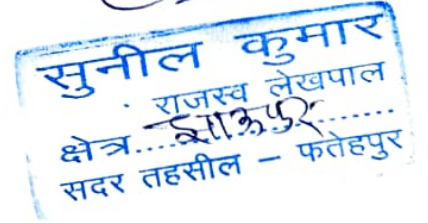 सुनील कुमार
राजस्व लेखपाल
क्षेत्र..............
सदर तहसील - फतेहपुर